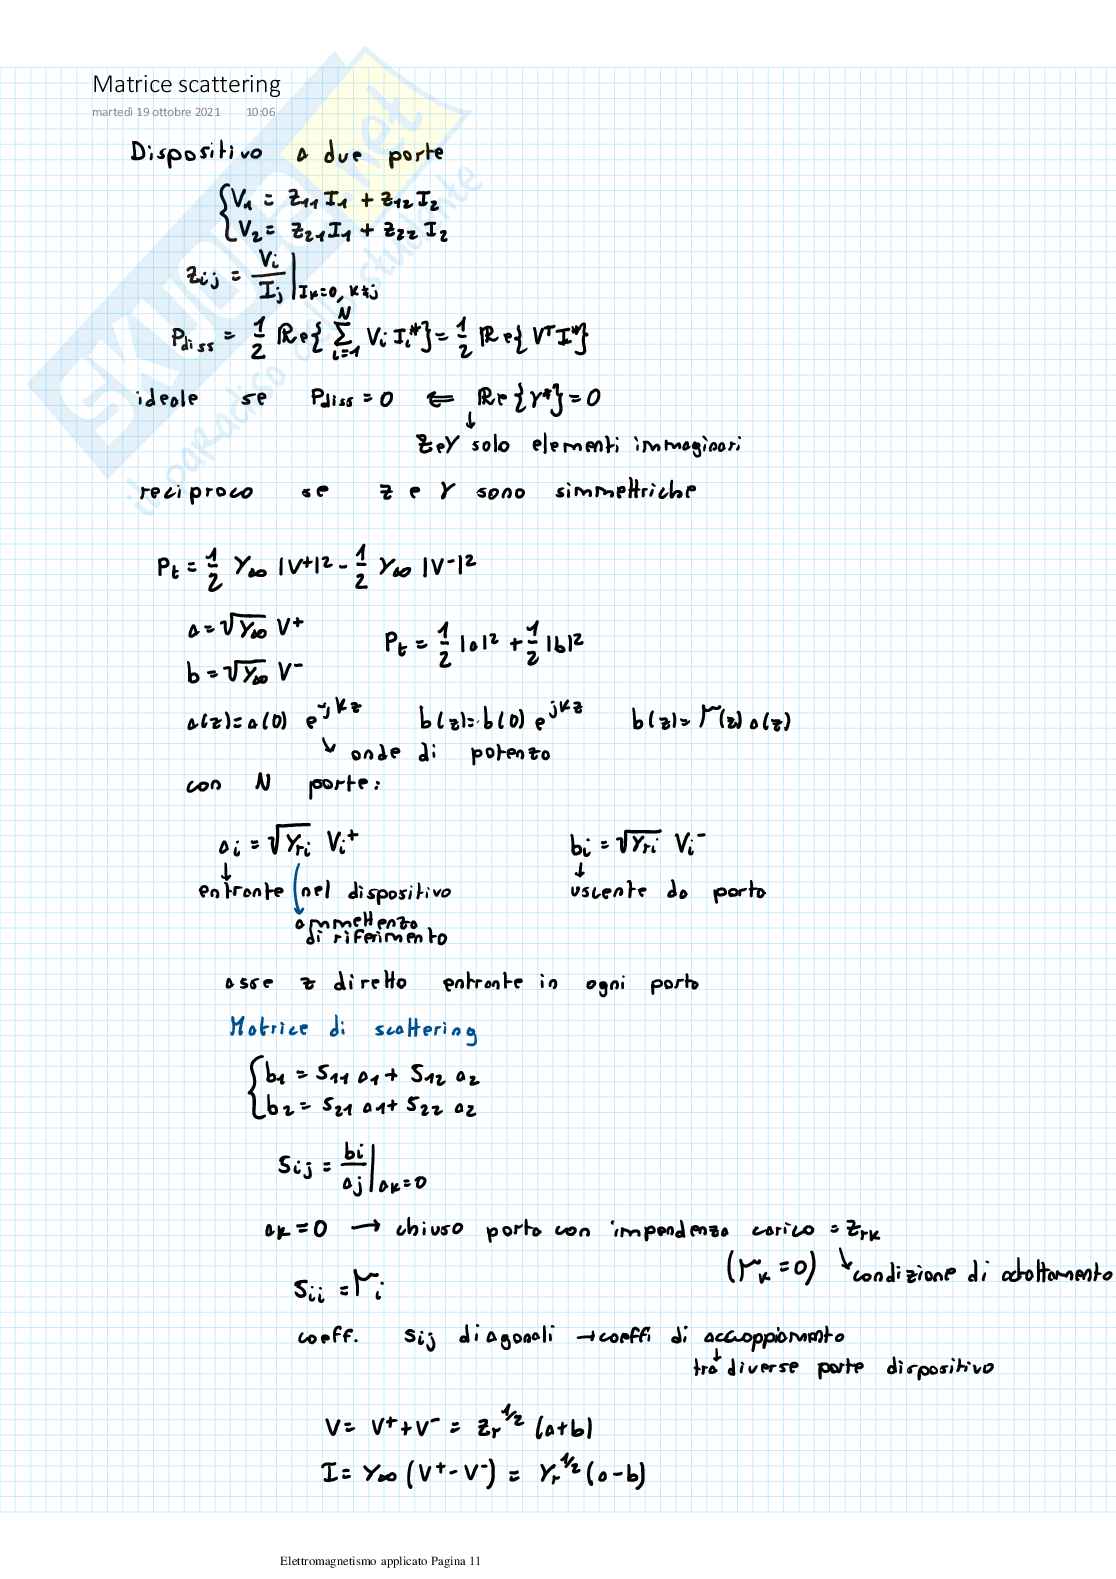 Matrice scattering
martedì 19 ottobre 2021 10:06
Dispositivo a due porte
{V1 = Z11 I1 + Z12 I2
V2 = Z21 I1 + Z22 I2
Zij = Vi/Ij |Ik=0, k≠j
Pdiss = 1/2 Re{ Σ_{i=1}^{N} Vi Ii* } = 1/2 Re{ V^T I* }
ideale se Pdiss = 0 ⇐ Re{Y*} = 0
↓
Z e Y solo elementi immaginari
reciproco se Z e Y sono simmettriche
Pt = 1/2 Y∞ |V+|² - 1/2 Y∞ |V-|²
a = √Y∞ V+
Pt = 1/2 |a|² + 1/2 |b|²
b = √Y∞ V-
a(z) = a(0) e^-jkz b(z) = b(0) e^jkz b(z) = Γ(z) a(z)
↘ onde di potenza
con N porte:
ai = √Yri Vi+ bi = √Yri Vi-
↓ ↓
entrante nel dispositivo uscente da porta
ammettenza
di riferimento
asse z diretto entrante in ogni porta
Matrice di scattering
{b1 = S11 a1 + S12 a2
b2 = S21 a1 + S22 a2
Sij = bi/aj |ak=0
ak = 0 → chiuso porta con impendenza carico = Zrk
(Γk = 0) ↘ condizione di adattamento
Sii = Γi
coeff. Sij diagonali → coeffi di accoppiamento
↓
tra diverse porte dispositivo
V = V+ + V- = Zr^1/2 (a+b)
I = Y∞ (V+ - V-) = Yr^1/2 (a-b)
Elettromagnetismo applicato Pagina 11
SKUOLA.net
il paradiso dello studente